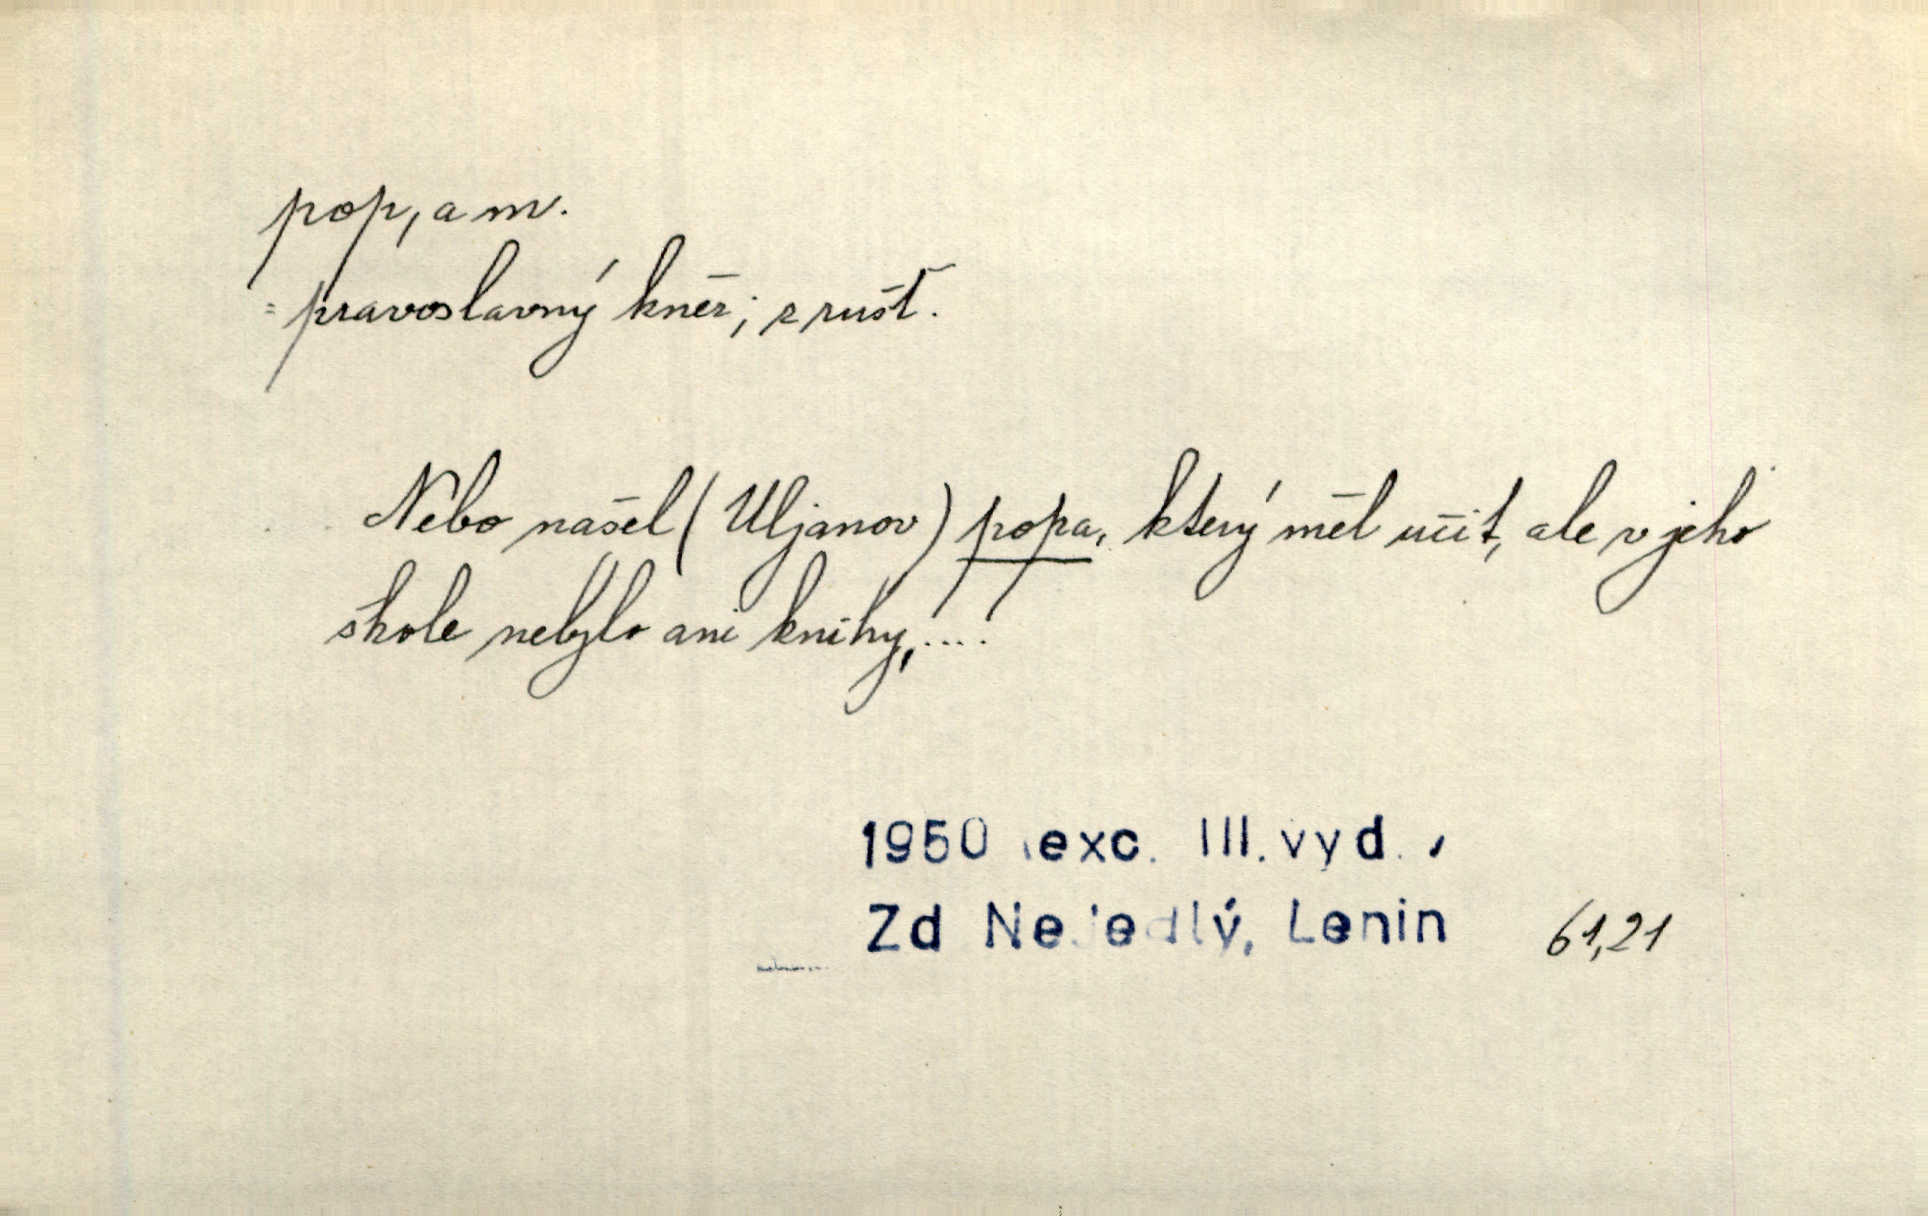 pop, a m.
= pravoslavný kněz; z rušt.
Nebo našel (Uljanov) popa, který měl učit, ale v jeho
škole nebylo ani knihy,....
1950 exc. III. vyd.
Zd Nejedlý, Lenin 61,21